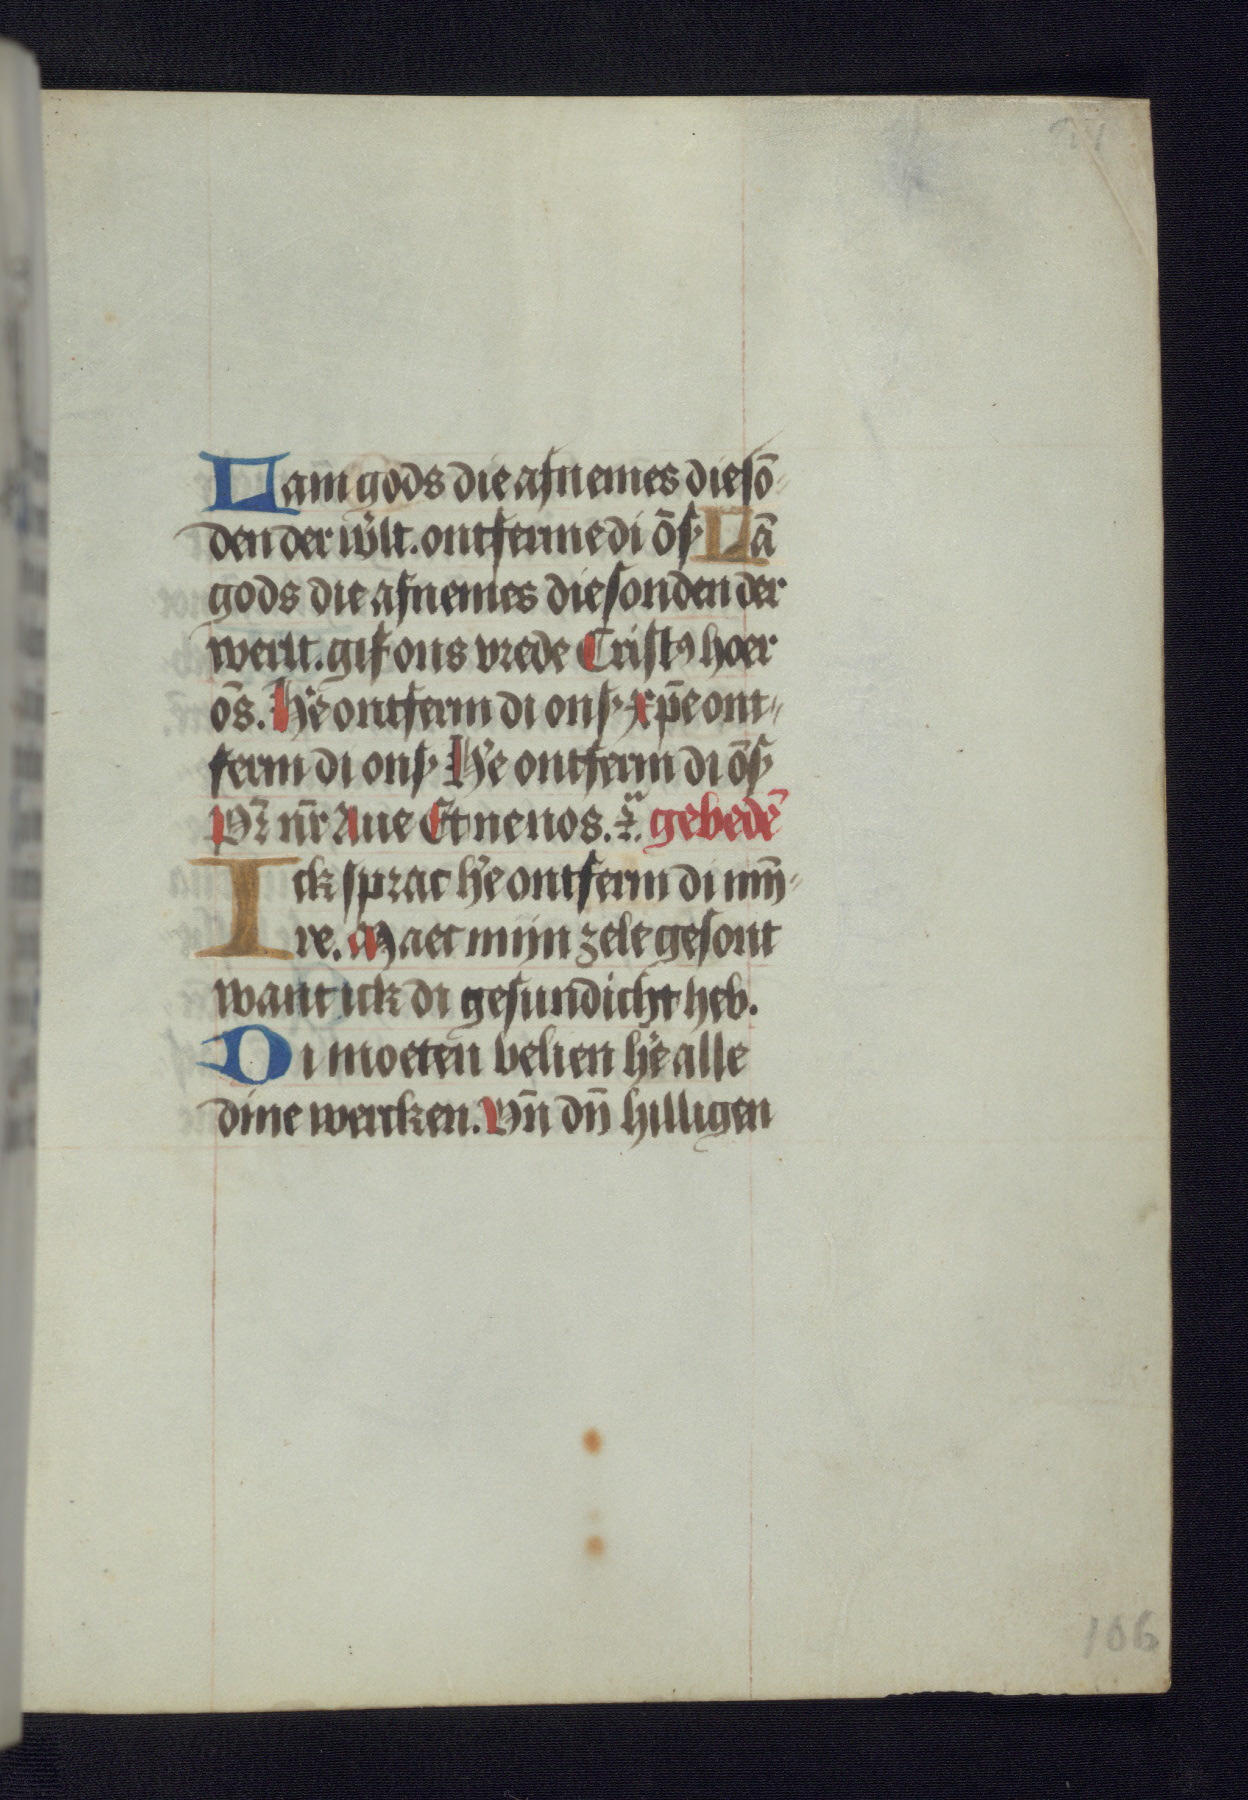 Lam gods die afnemes die sō-
den der w̄lt. ontfermedi ōs Lā
gods die afnemes die sonden der
werlt. gif ons vrede Cristꝰ hoer
ōs. He ontferm di ons xp̄e ont-
ferm di ons He ontferm di ōs
Pr̄ nr̄ Aue Et ne nos. gebedē
Ick sprac he ontferm di mijn-
re. Maec mijn zele gesont
want ick di gesundicht heb.
Di moeten belien he alle
dine wercken. Vn̄ dn̄ hilligen
106